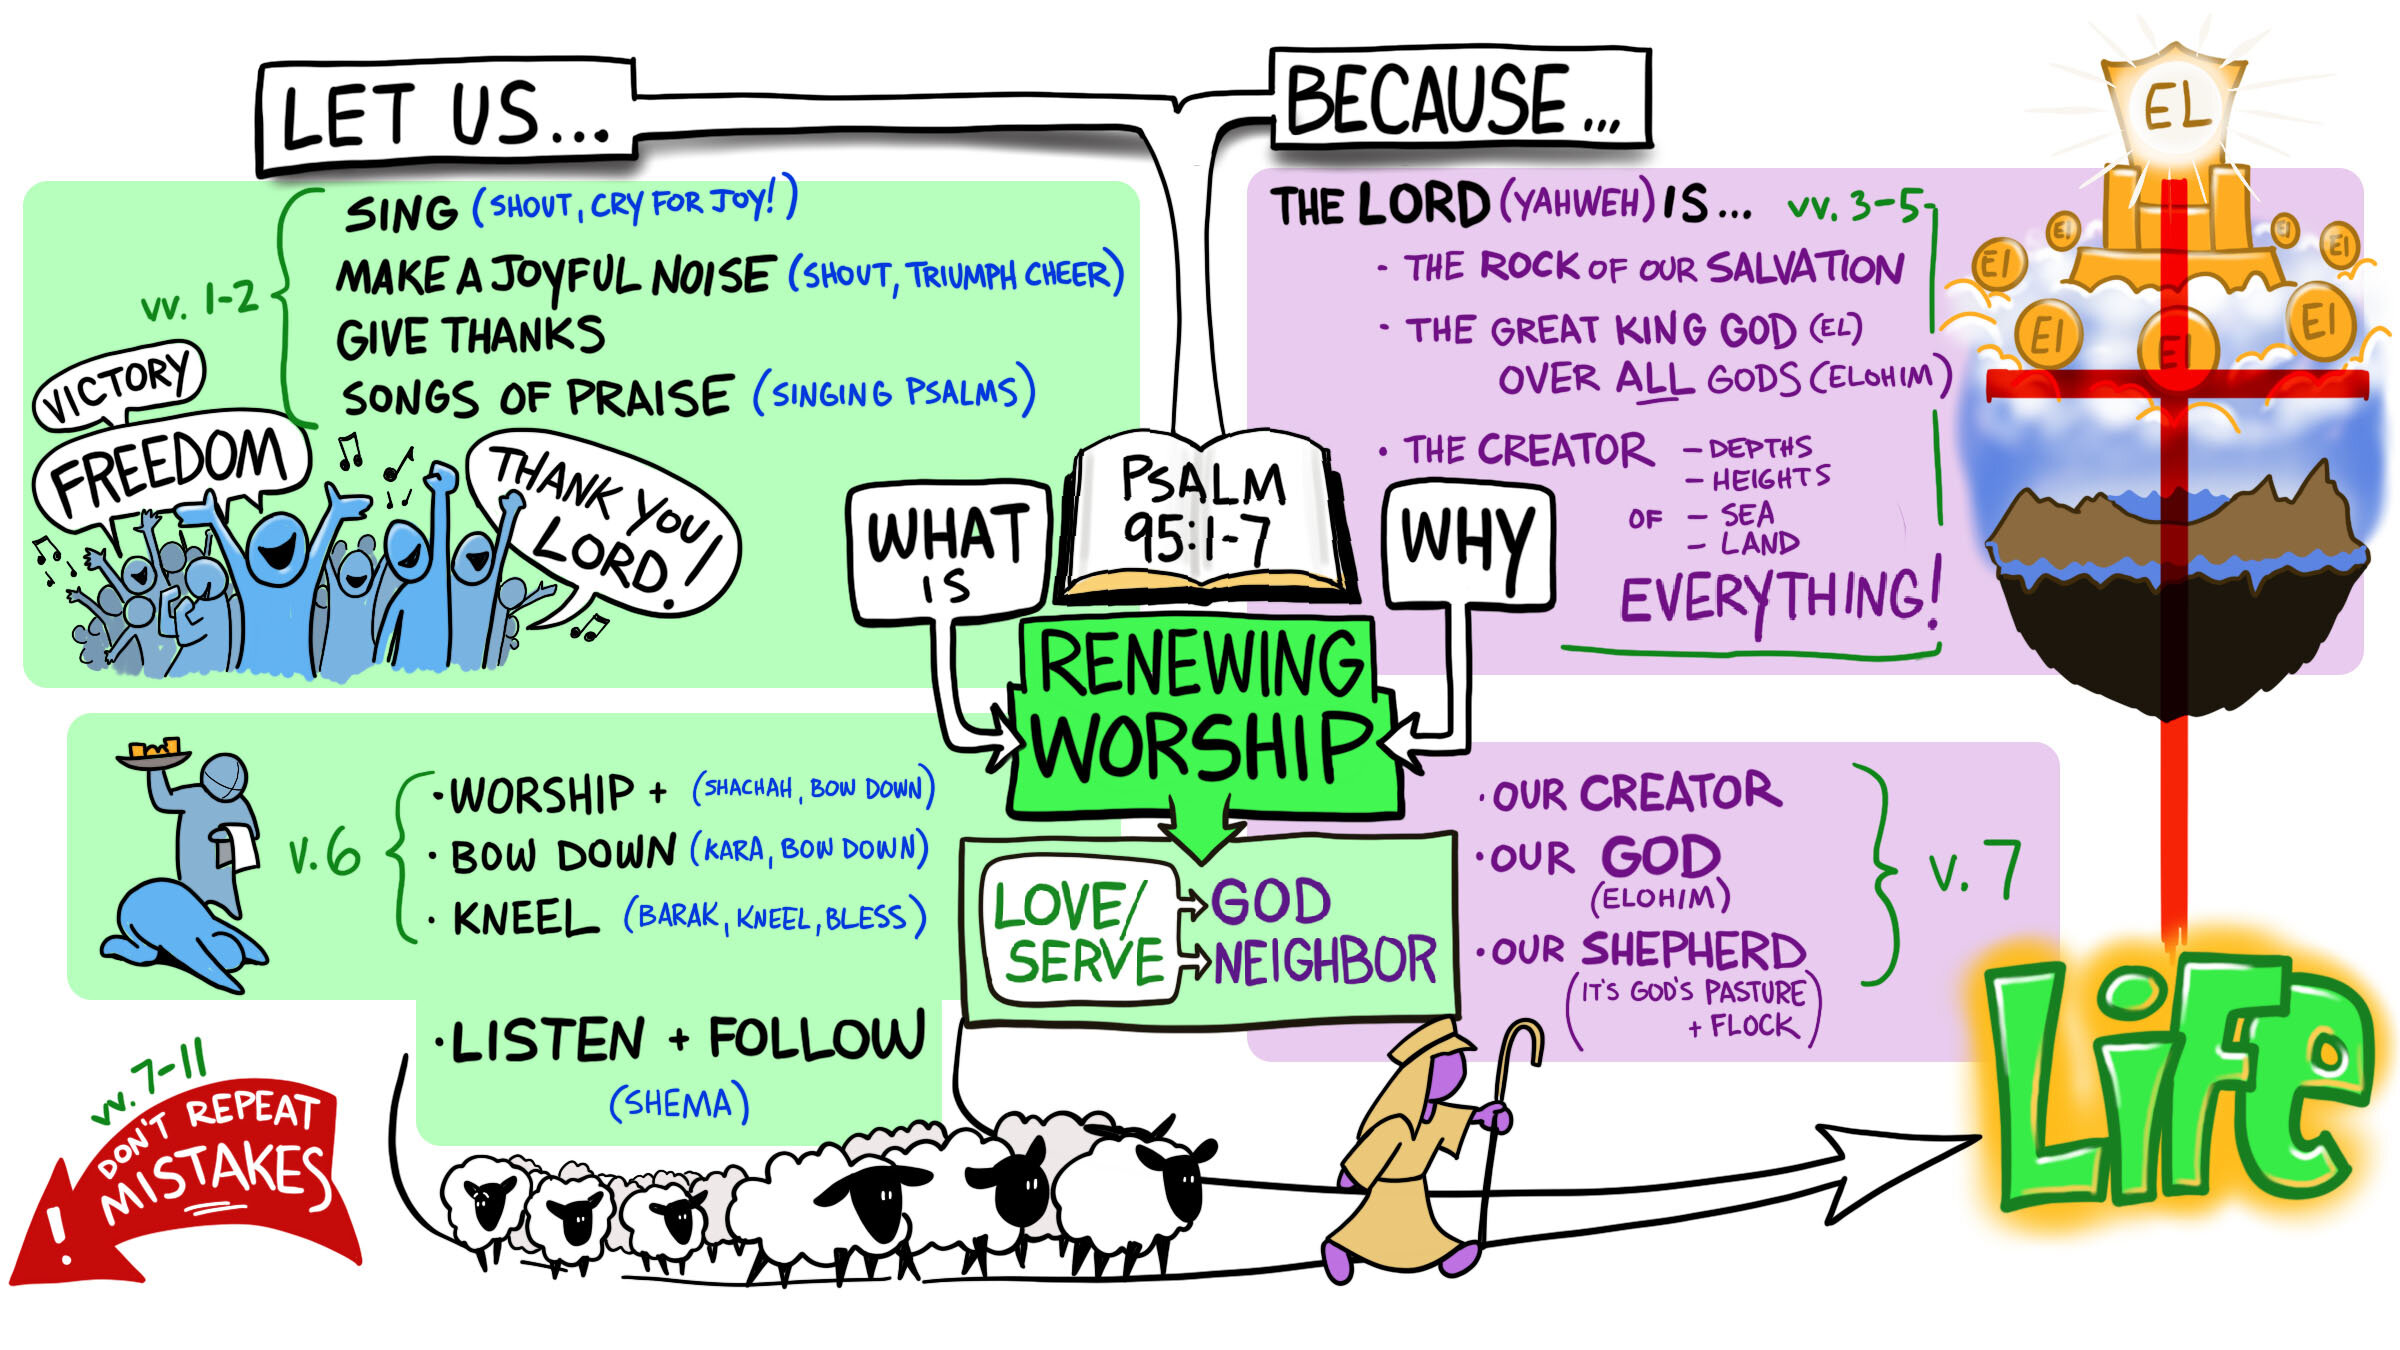 LET US...
vv. 1-2
SING (SHOUT, CRY FOR JOY!)
MAKE A JOYFUL NOISE (SHOUT, TRIUMPH CHEER)
GIVE THANKS
SONGS OF PRAISE (SINGING PSALMS)
VICTORY
FREEDOM
THANK YOU
LORD!
BECAUSE...
THE LORD (YAHWEH) IS... vv. 3-5
· THE ROCK OF OUR SALVATION
· THE GREAT KING GOD (EL)
OVER ALL GODS (ELOHIM)
· THE CREATOR
OF
- DEPTHS
- HEIGHTS
- SEA
- LAND
EVERYTHING!
EL
El
El
El
El
El
El
El
PSALM
95:1-7
WHAT
IS
WHY
RENEWING
WORSHIP
v. 6
· WORSHIP + (SHACHAH, BOW DOWN)
· BOW DOWN (KARA, BOW DOWN)
· KNEEL (BARAK, KNEEL, BLESS)
· LISTEN + FOLLOW
(SHEMA)
LOVE/
SERVE
GOD
NEIGHBOR
· OUR CREATOR
· OUR GOD
(ELOHIM)
· OUR SHEPHERD
(IT'S GOD'S PASTURE
+ FLOCK)
v. 7
vv. 7-11
DON'T REPEAT
MISTAKES
!
LiFe